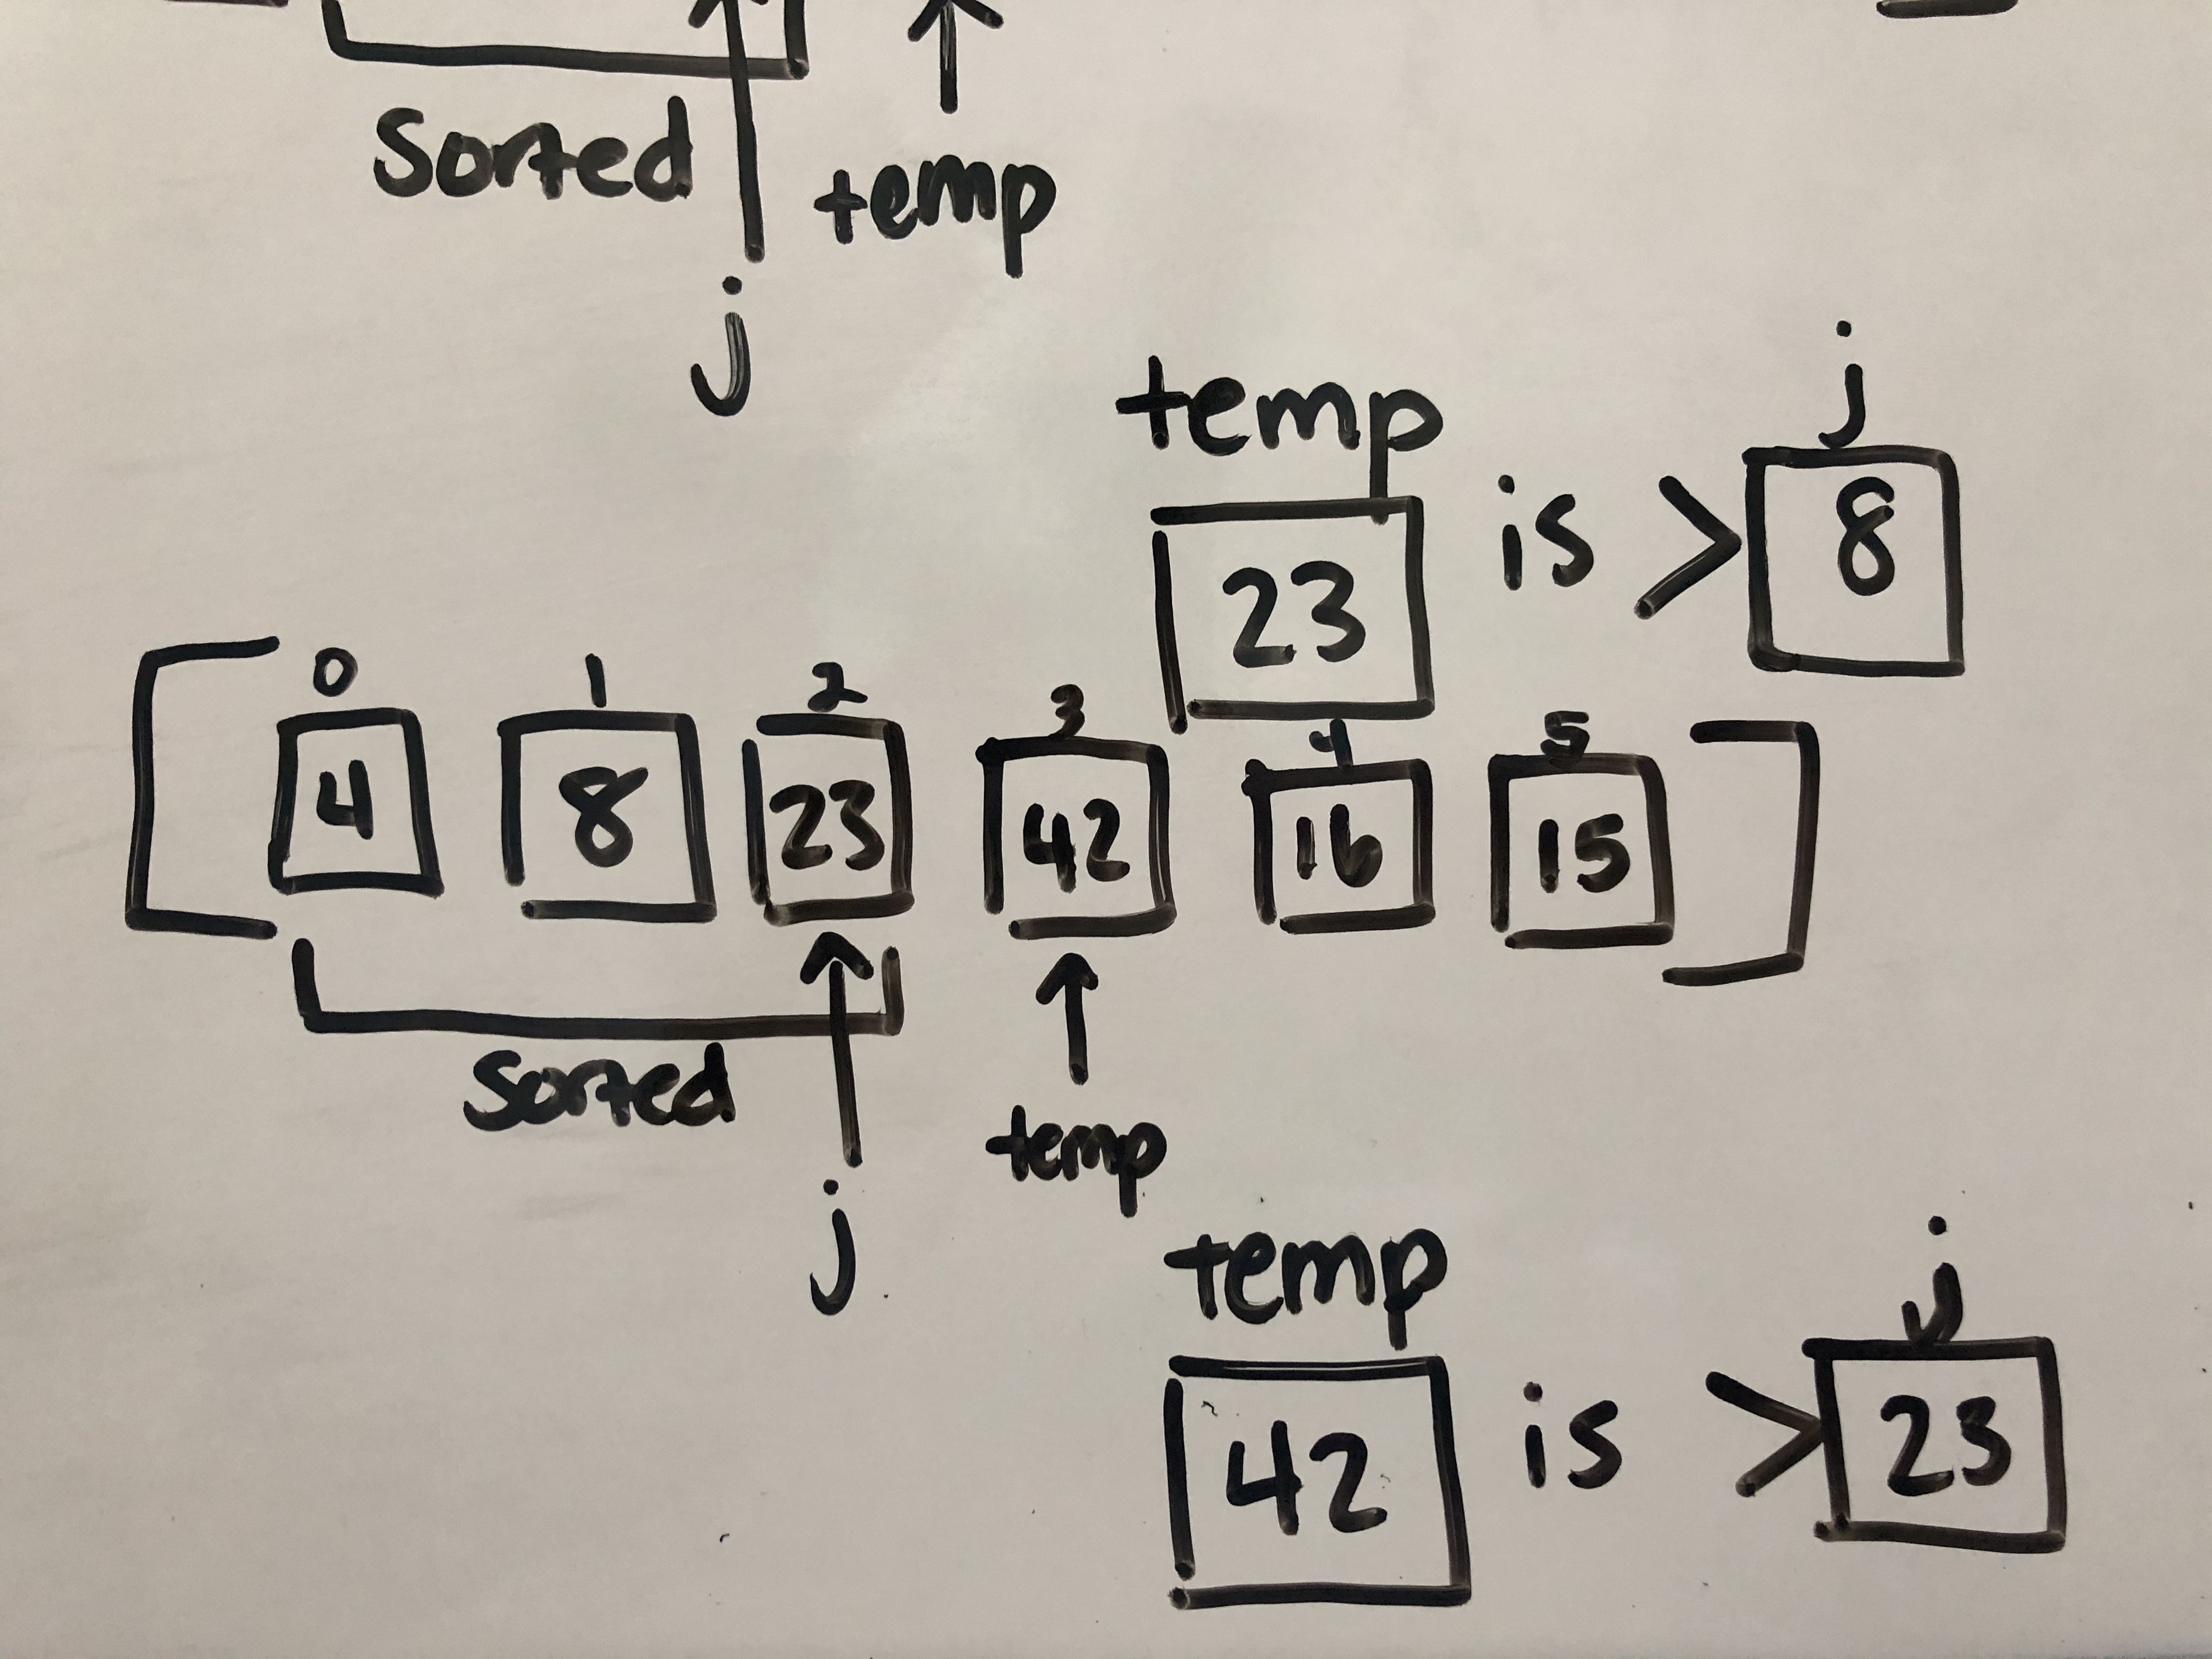 Sorted
temp
j
temp
j
23 is > 8
0 1 2 3 4 5
[ 4 8 23 42 16 15 ]
Sorted
temp
j
temp
j
42 is > 23